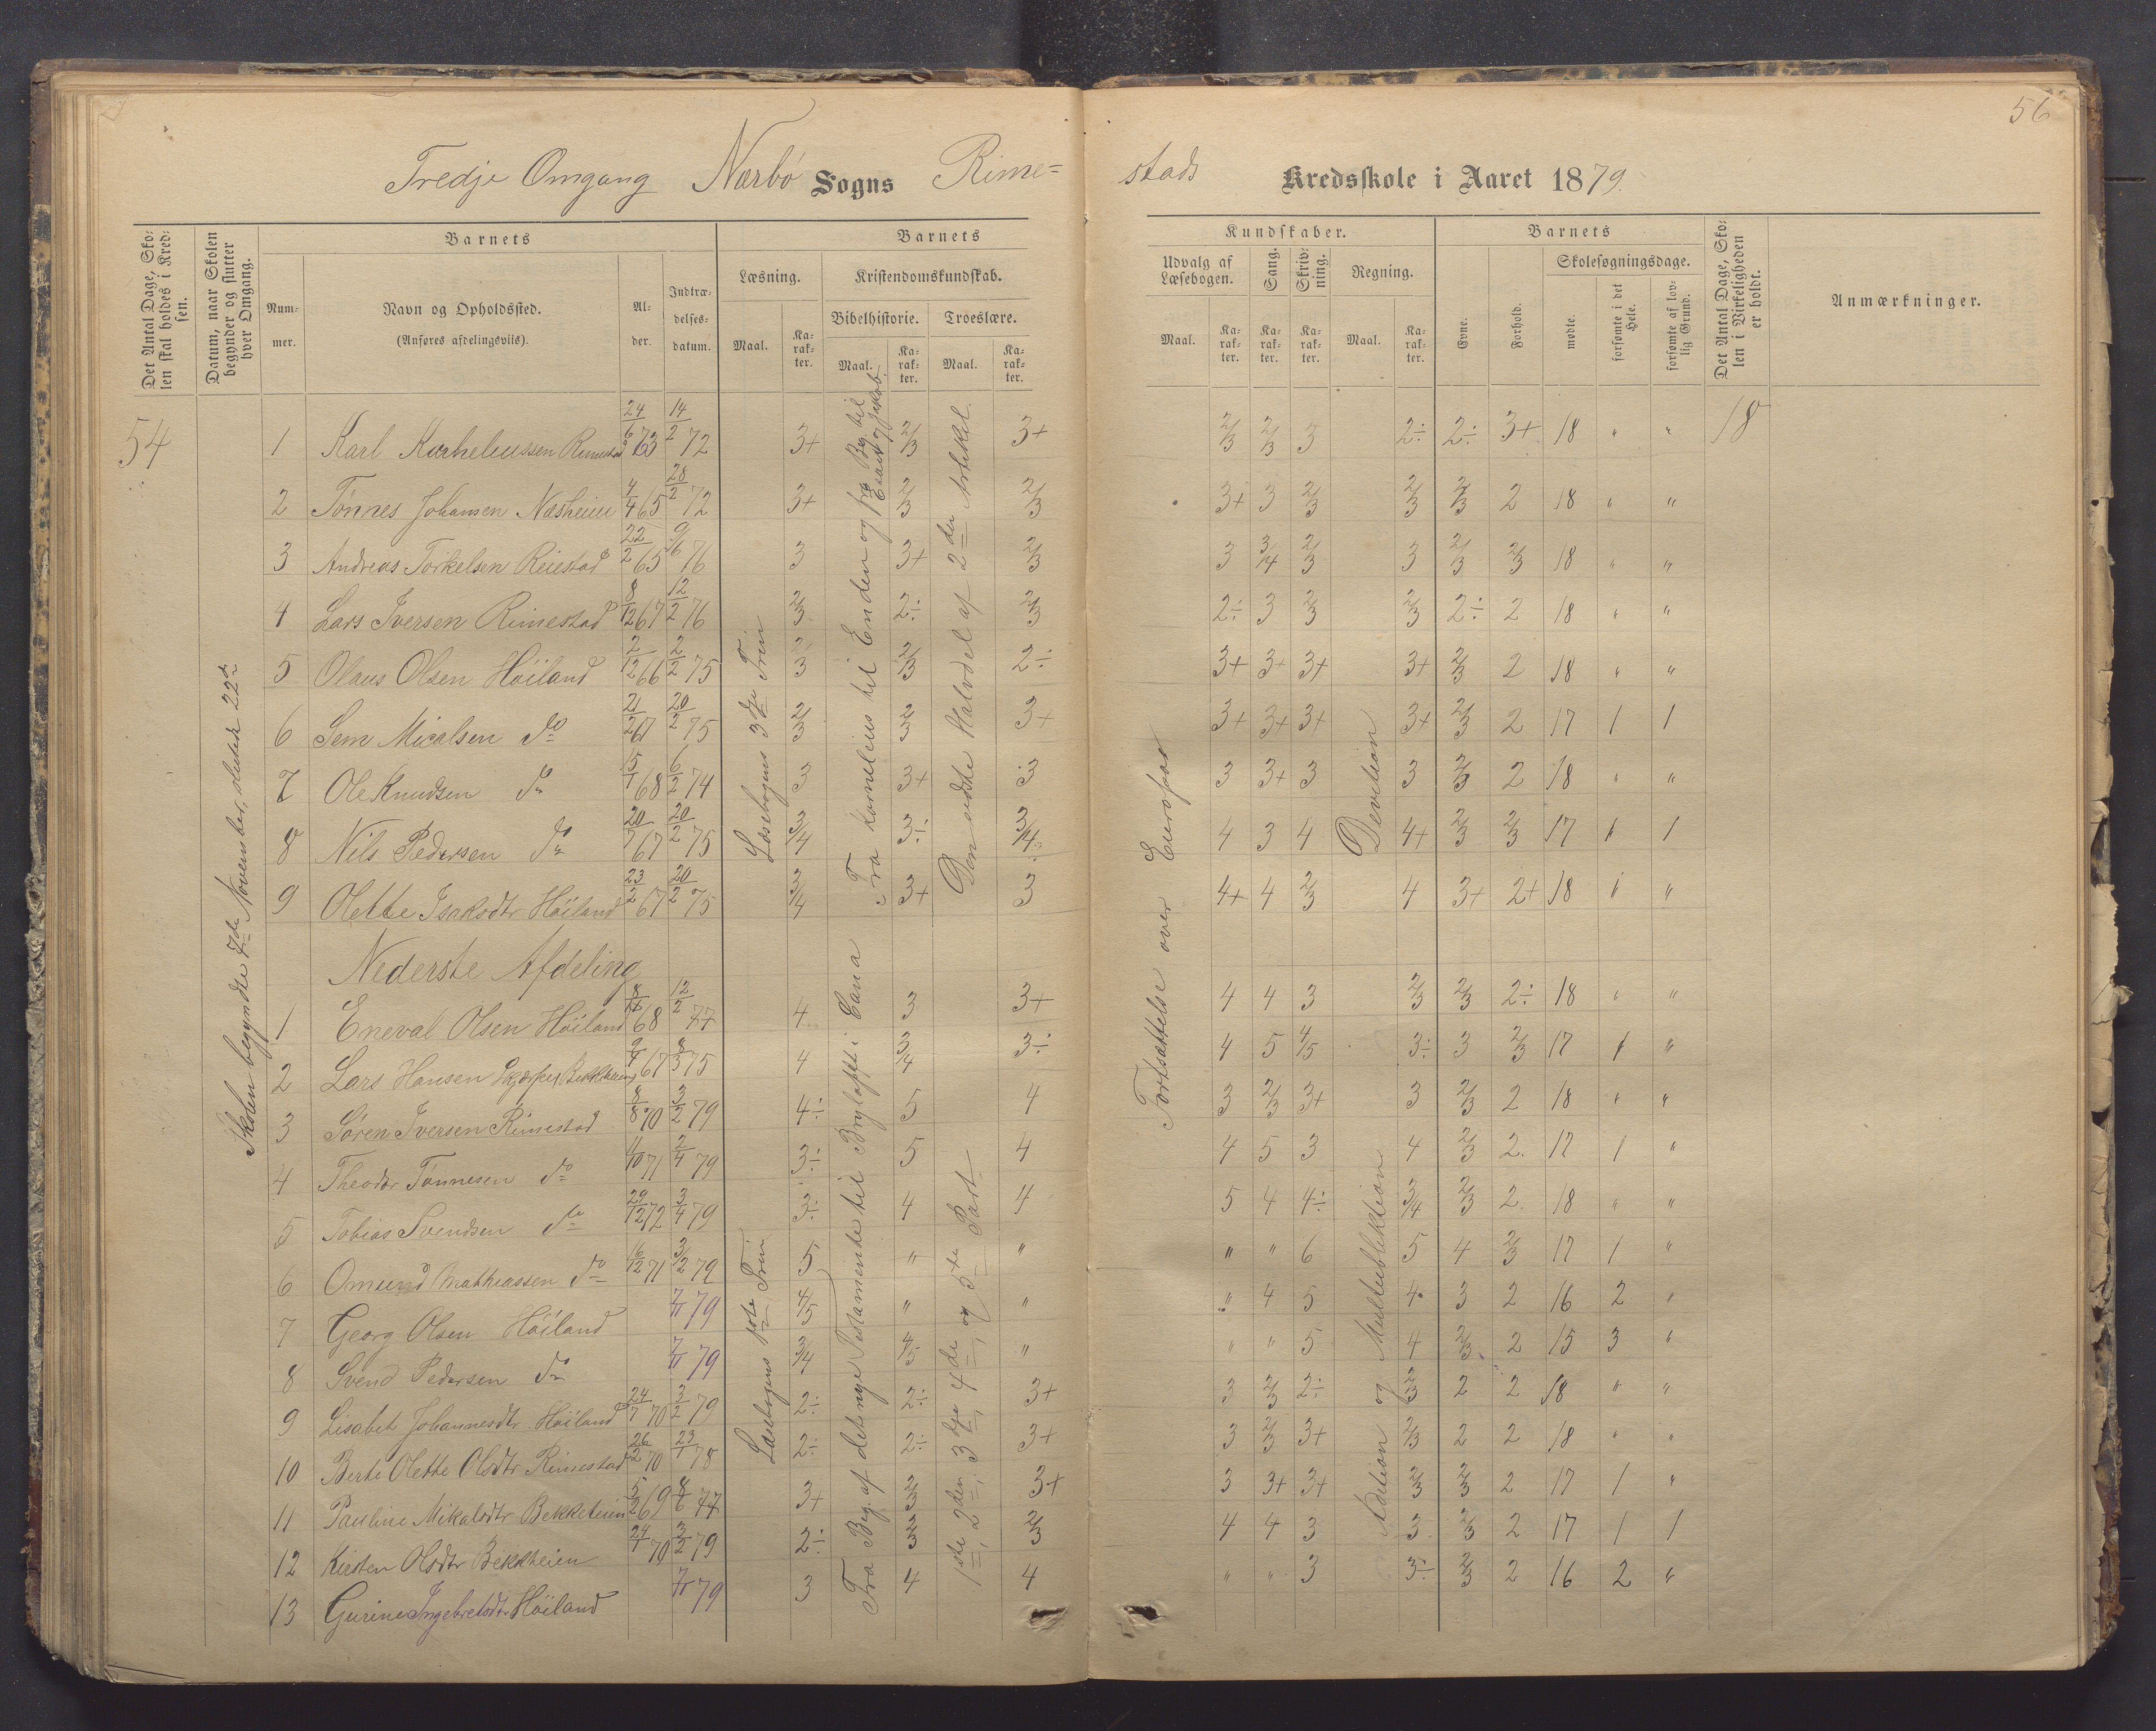 56
Tredje Omgang Nærbø Sogns Rime-
stads Kredsskole i Aaret 1879.
Det Antal Dage, Sko-
len skal holdes i Kred-
sen.
Datum, naar Skolen
begynder og slutter
hver Omgang.
Barnets
Num-
mer.
Navn og Opholdssted.
(Anføres afdelingsviis).
Al-
der.
Indtræ-
delses-
datum.
Barnets
Læsning.
Maal.
Ka-
rak-
ter.
Kristendomskundskab.
Bibelhistorie.
Maal.
Ka-
rak-
ter.
Troeslære.
Maal.
Ka-
rak-
ter.
Kundskaber.
Udvalg af
Læsebogen.
Maal.
Ka-
rak-
ter.
Sang.
Ka-
rak-
ter.
Skriv-
ning.
Ka-
rak-
ter.
Regning.
Maal.
Ka-
rak-
ter.
Barnets
Evne.
Forhold.
Skolesøgningsdage.
mødte.
forsømte i det
Hele.
forsømte af lov-
lig Grund.
Det Antal Dage, Sko-
len i Virkeligheden
er holdt.
Anmærkninger.
54
Skolen begyndte 7de November, sluttede 22de
Læsebogens 3dje Trin
Fra Kornelius til Enden og fra Beg. til
Esau og Jakob.
Den sidste Halvdel af 2den Artikel.
Fortsættelse over Europaa
Devition
18
1 Karl Rimestad 14/2 72 3+ 2/3 3+ 2/3 2/3 3 2÷ 2÷ 3+ 18 " "
2 Tønnes Johansen Næsheim 4/4 65 28/2 72 3+ 2/3 2/3 3+ 3 2/3 2/3 2/3 2 18 " "
3 Andreas Torkelsen 22/2 65 9/6 76 3 3+ 2/3 3 3/4 2/3 3 2/3 2/3 18 " "
4 Lars Iversen Rimestad 8/12 67 12/2 76 2/3 2÷ 2/3 2÷ 3 2/3 2/3 2÷ 2 18 " "
5 Olaus Olsen Höiland 2/12 66 2/2 75 2/3 2/3 2÷ 3+ 3+ 3+ 3+ 2/3 2 18 " "
6 Sem Micalsen do 21/2 67 20/2 75 2/3 2/3 3+ 3+ 3+ 3+ 3+ 2/3 2 17 1 1
7 Ole Knudsen do 15/1 68 6/2 74 3 3+ 3 3 3+ 3 3 2/3 2 18 " "
8 Nils Pedersen do 20/7 67 20/2 75 3/4 3÷ 3/4 4 3 4 4+ 2/3 2/3 17 1 1
9 Olette Isaksdtr Höiland 23/2 67 20/2 75 3/4 3+ 3 4+ 4 2/3 4 3+ 2+ 18 " "
Nederste Afdeling
Læsebogens 1ste Trin
Fra Beg. af det nye Testamente til Bryloppet i Cana
1ste, 2den, 3dje, 4de, og 5te Part
Adetion og Multeblektion
1 Eneval Olsen Höiland 68 12/2 77 4 3 3+ 4 4 3 2/3 2/3 2÷ 18 " "
2 Lars Hansen 67 8/3 75 4 3/4 3÷ 4 5 4/5 3÷ 3 2/3 17 1 "
3 Søren Iversen Rimestad 8/8 70 3/2 79 4÷ 5 4 3 2/3 3+ 3 2/3 2 18 " "
4 Theodor Tønnesen do 11/10 71 2/4 79 3÷ 5 4 4 5 3 4 2/3 2. 17 1 "
5 Tobias Svendsen do 29/12 72 3/4 79 3÷ 4 4 5 4 4÷ 3/4 2/3 2. 18 " "
6 Omund Mathiassen do 16/12 71 3/2 79 5 " " " " 6 5 4 2/3 17 1 "
7 Georg Olsen Höiland 7/11 79 4/5 " " " 4 5 4 3 2 16 2 "
8 Svend Pedersen do 7/11 79 3/4 4/5 " " " 5 4 2/3 2 15 3 "
9 Lisabet Johannesdtr. Höiland 24/7 70 3/2 79 2÷ 2÷ 3+ 3 2/3 2÷ 2/3 2 2 18 " "
10 Berte Olette Olsdtr Rimestad 26/2 70 23/1 78 2÷ 2÷ 3+ 3 2/3 3+ 2/3 2 2 18 " "
11 Pauline Mikalsdtr Bekkeheien 5/2 69 8/6 77 3+ 2/3 3+ 3 3+ 3+ 2/3 2/3 2 17 1 "
12 Kirsten Olsdtr Bekkheien 24/1 70 3/2 79 2÷ 2/3 2/3 4 4 3 3 2/3 2 17 1 1
13 Gurine Ingebretsdtr Höiland 7/11 79 3 4 4 " " 3 3÷ 2/3 2 16 2 "